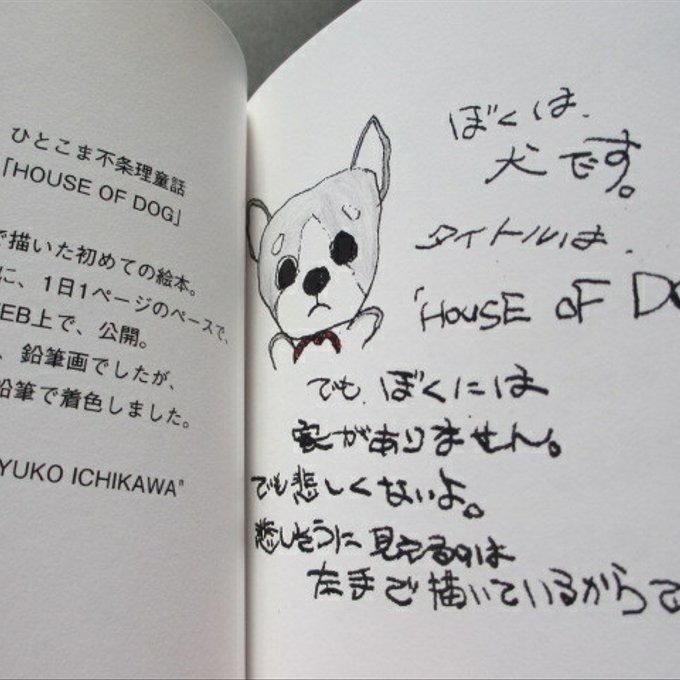 ひとこま不条理童話
「HOUSE OF DOG」
で描いた初めての絵本。
に、1日1ページのペースで、
EB上で、公開。
、鉛筆画でしたが、
鉛筆で着色しました。
YUKO ICHIKAWA"
ぼくは、
犬です。
タイトルは、
「HOUSE OF DO
でも、ぼくには
家がありません。
でも悲しくないよ。
悲しそうに見えるのは
左手で描いているからで